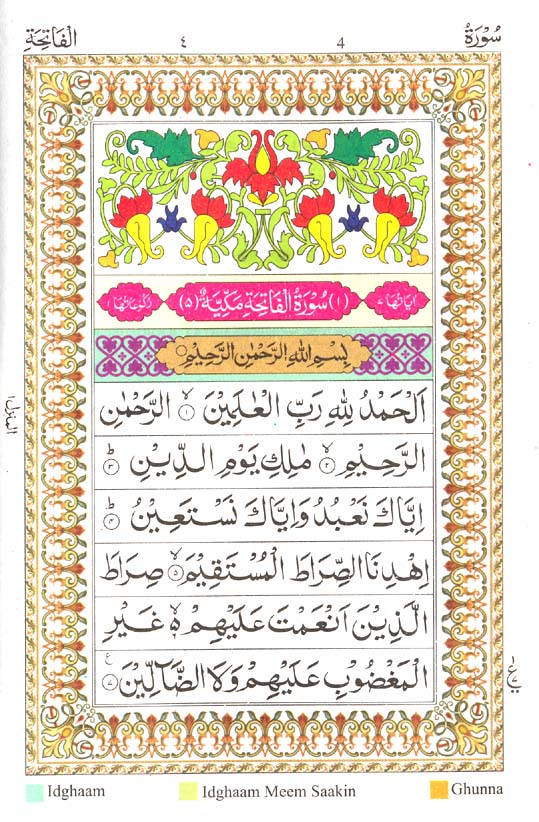 سُوْرَةُ 4 ٤ الْفَاتِحَةِ
اٰيَاتُهَا ٧ (١) سُوْرَةُ الْفَاتِحَةِ مَكِّيَّةٌ (٥) رُكُوْعَاتُهَا ١
بِسْمِ اللهِ الرَّحْمٰنِ الرَّحِيْمِ
اَلْحَمْدُ لِلّٰهِ رَبِّ الْعٰلَمِيْنَ ۙ ١ الرَّحْمٰنِ
الرَّحِيْمِ ۙ ٢ مٰلِكِ يَوْمِ الدِّيْنِ ؕ ٣
اِيَّاكَ نَعْبُدُ وَاِيَّاكَ نَسْتَعِيْنُ ؕ ٤
اِهْدِنَا الصِّرَاطَ الْمُسْتَقِيْمَ ۙ ٥ صِرَاطَ
الَّذِيْنَ اَنْعَمْتَ عَلَيْهِمْ ۙ ٥ غَيْرِ
الْمَغْضُوْبِ عَلَيْهِمْ وَلَا الضَّآلِّيْنَ ع ٧
المنزل ١
١ ع ٧
Idghaam Idghaam Meem Saakin Ghunna